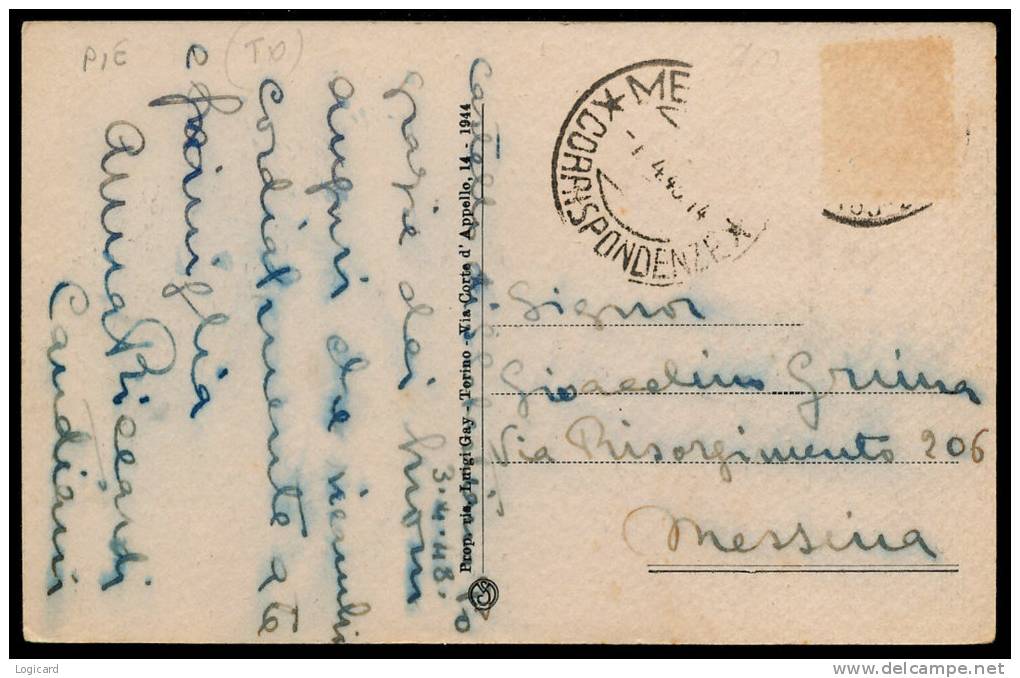 PIE
(TO)
grazie dei buoni
auguri che ricambio
cordialmente a te
e famiglia
Anna Ricciardi
Candiani
3.4.48.
Prop. ris. Luigi Gay - Torino - Via Corte d' Appello, 14 - 1944
ME
CORRISPONDENZE
Signor
Gioacchino Grima
Via Risorgimento 206
Messina
Logicard
www.delcampe.net